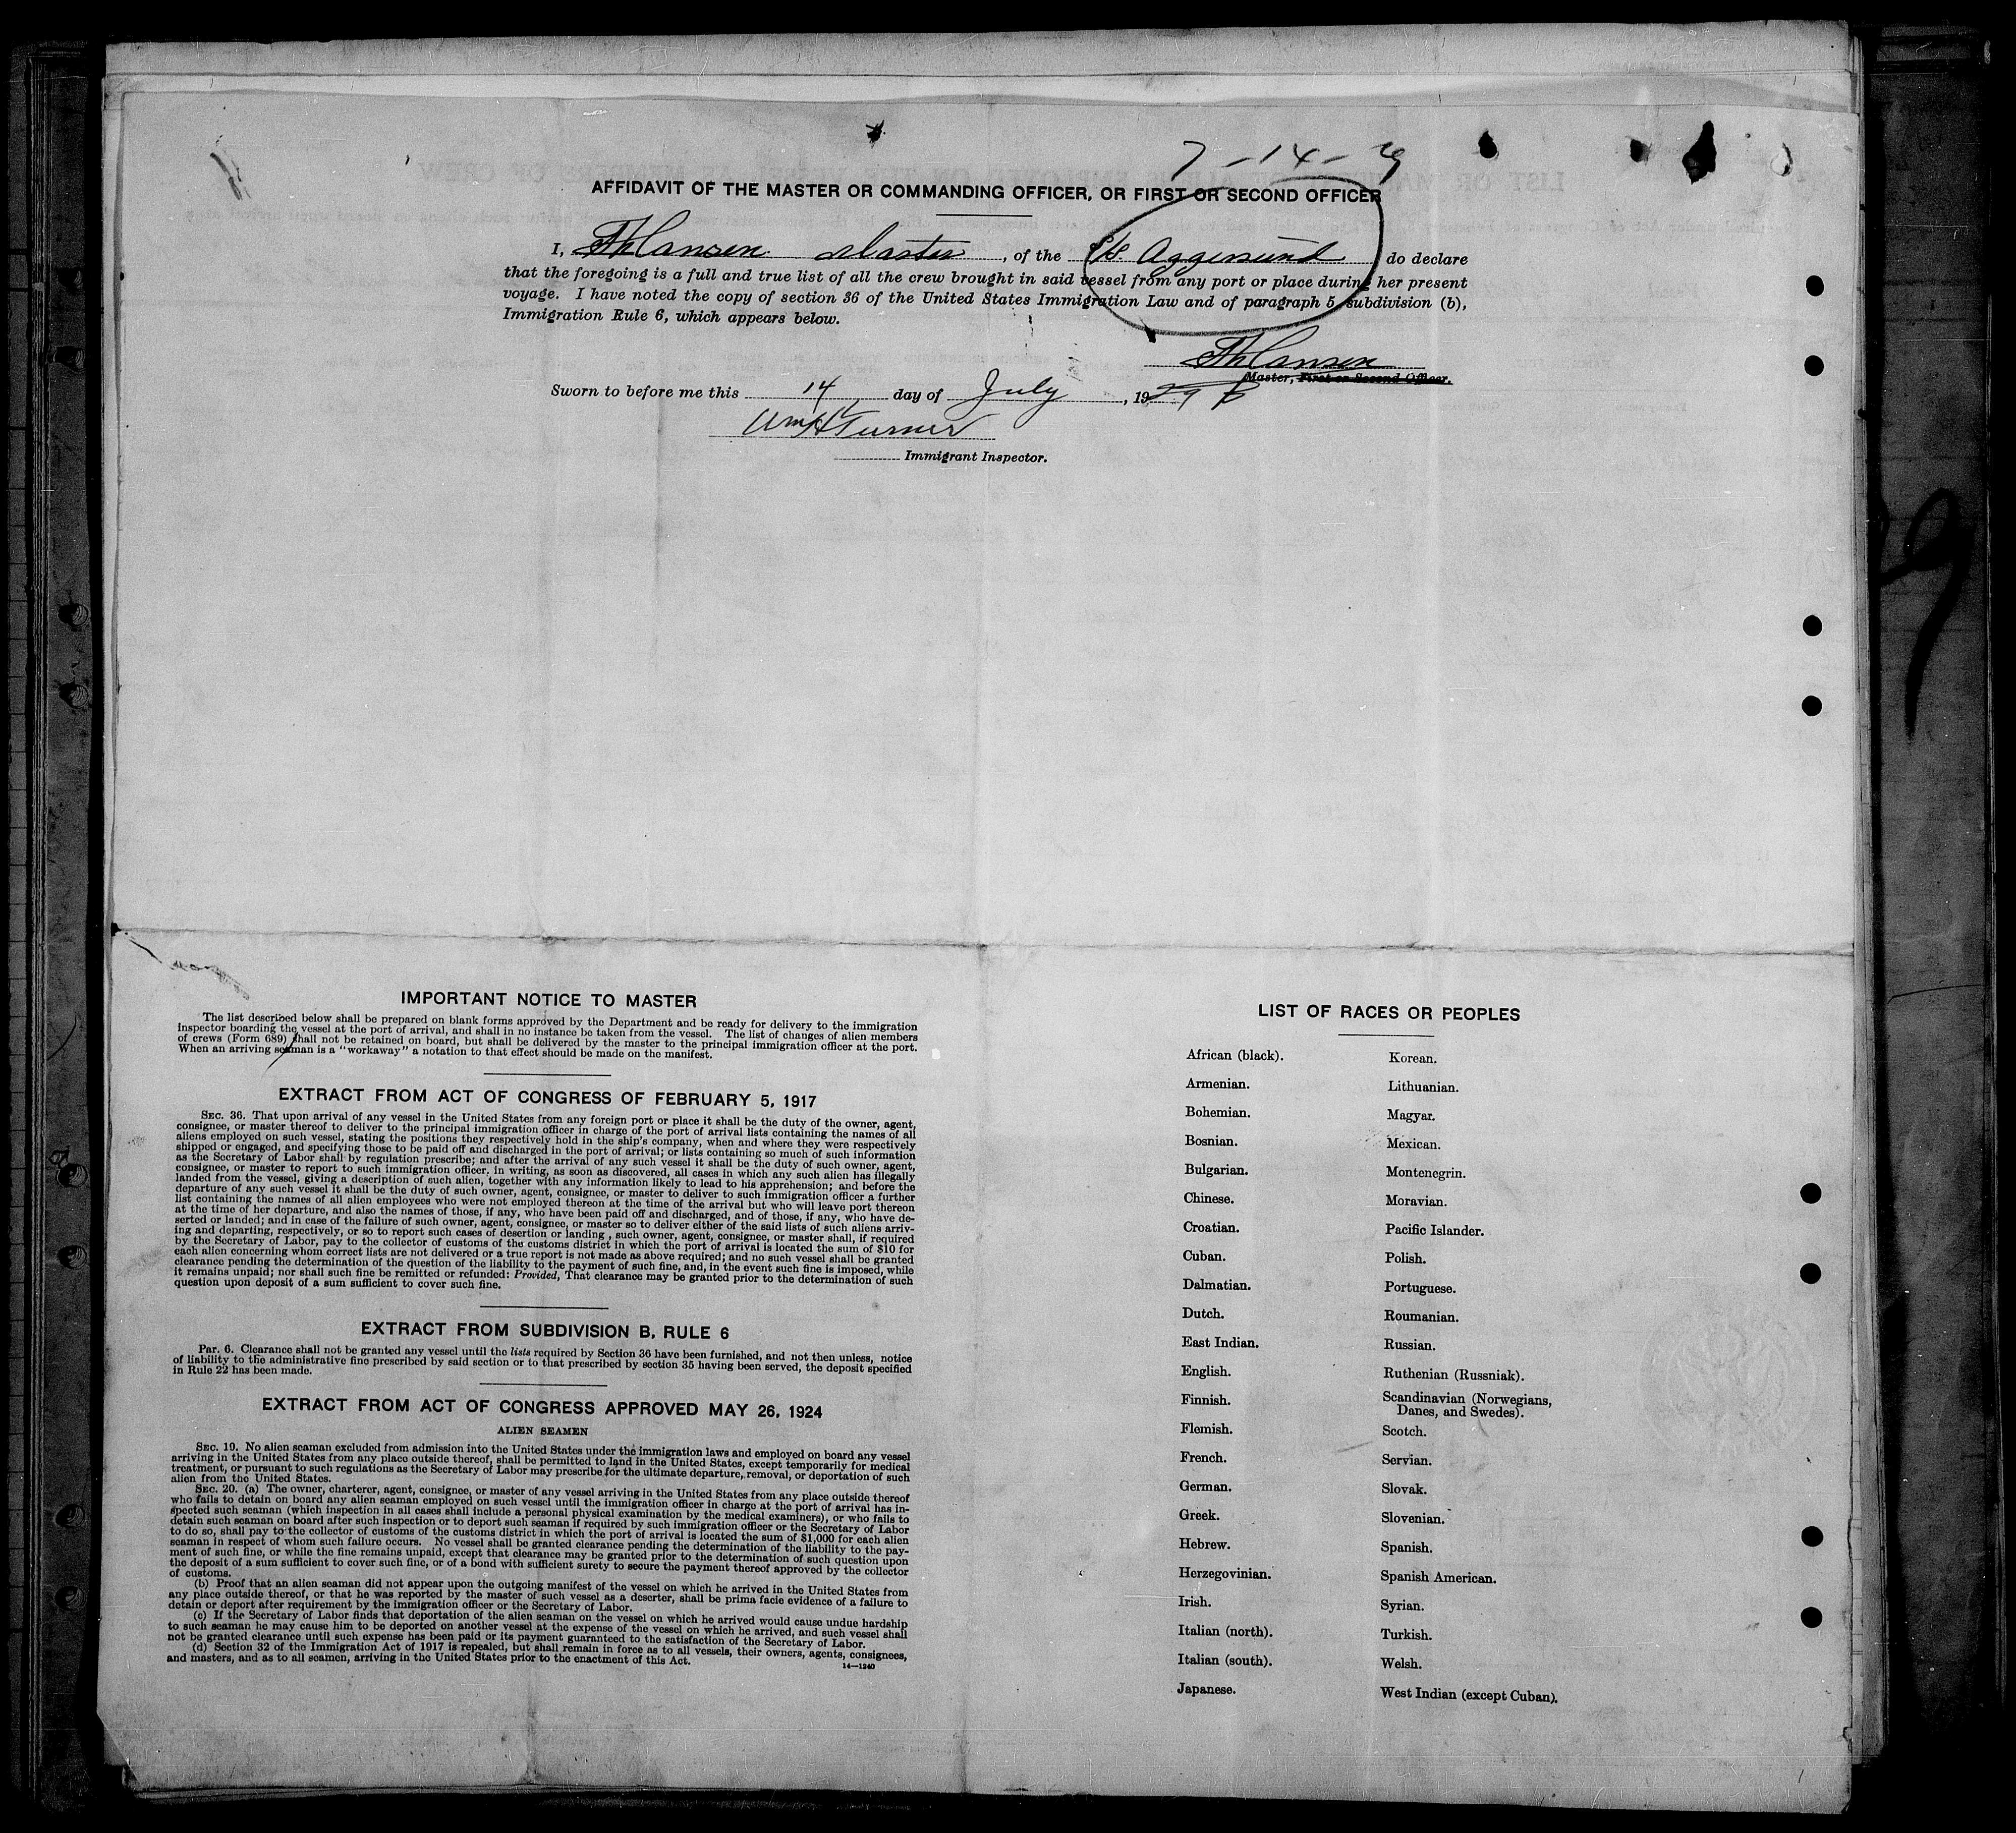 7-14-29
AFFIDAVIT OF THE MASTER OR COMMANDING OFFICER, OR FIRST OR SECOND OFFICER
I, Th Hansen Master, of the S/S. Aggersund do declare
that the foregoing is a full and true list of all the crew brought in said vessel from any port or place during her present
voyage. I have noted the copy of section 36 of the United States Immigration Law and of paragraph 5, subdivision (b),
Immigration Rule 6, which appears below.
Th Hansen
Master, First or Second Officer.
Sworn to before me this 14 day of July, 1929
Wm H Turner
Immigrant Inspector.
IMPORTANT NOTICE TO MASTER
The list described below shall be prepared on blank forms approved by the Department and be ready for delivery to the immigration
inspector boarding the vessel at the port of arrival, and shall in no instance be taken from the vessel. The list of changes of alien members
of crews (Form 689) shall not be retained on board, but shall be delivered by the master to the principal immigration officer at the port.
When an arriving seaman is a "workaway" a notation to that effect should be made on the manifest.
EXTRACT FROM ACT OF CONGRESS OF FEBRUARY 5, 1917
SEC. 36. That upon arrival of any vessel in the United States from any foreign port or place it shall be the duty of the owner, agent,
consignee, or master thereof to deliver to the principal immigration officer in charge of the port of arrival lists containing the names of all
aliens employed on such vessel, stating the positions they respectively hold in the ship's company, when and where they were respectively
shipped or engaged, and specifying those to be paid off and discharged in the port of arrival; or lists containing so much of such information
as the Secretary of Labor shall by regulation prescribe; and after the arrival of any such vessel it shall be the duty of such owner, agent,
consignee, or master to report to such immigration officer, in writing, as soon as discovered, all cases in which any such alien has illegally
landed from the vessel, giving a description of such alien, together with any information likely to lead to his apprehension; and before the
departure of any such vessel it shall be the duty of such owner, agent, consignee, or master to deliver to such immigration officer a further
list containing the names of all alien employees who were not employed thereon at the time of the arrival but who will leave port thereon
at the time of her departure, and also the names of those, if any, who have been paid off and discharged, and of those, if any, who have de-
serted or landed; and in case of the failure of such owner, agent, consignee, or master so to deliver either of the said lists of such aliens arriv-
ing and departing, respectively, or so to report such cases of desertion or landing, such owner, agent, consignee, or master shall, if required
by the Secretary of Labor, pay to the collector of customs of the customs district in which the port of arrival is located the sum of $10 for
each alien concerning whom correct lists are not delivered or a true report is not made as above required; and no such vessel shall be granted
clearance pending the determination of the question of the liability to the payment of such fine, and, in the event such fine is imposed, while
it remains unpaid; nor shall such fine be remitted or refunded: Provided, That clearance may be granted prior to the determination of such
question upon deposit of a sum sufficient to cover such fine.
EXTRACT FROM SUBDIVISION B, RULE 6
Par. 6. Clearance shall not be granted any vessel until the lists required by Section 36 have been furnished, and not then unless, notice
of liability to the administrative fine prescribed by said section or to that prescribed by section 35 having been served, the deposit specified
in Rule 22 has been made.
EXTRACT FROM ACT OF CONGRESS APPROVED MAY 26, 1924
ALIEN SEAMEN
SEC. 19. No alien seaman excluded from admission into the United States under the immigration laws and employed on board any vessel
arriving in the United States from any place outside thereof, shall be permitted to land in the United States, except temporarily for medical
treatment, or pursuant to such regulations as the Secretary of Labor may prescribe for the ultimate departure, removal, or deportation of such
alien from the United States.
SEC. 20. (a) The owner, charterer, agent, consignee, or master of any vessel arriving in the United States from any place outside thereof
who fails to detain on board any alien seaman employed on such vessel until the immigration officer in charge at the port of arrival has in-
spected such seaman (which inspection in all cases shall include a personal physical examination by the medical examiners), or who fails to
detain such seaman on board after such inspection or to deport such seaman if required by such immigration officer or the Secretary of Labor
to do so, shall pay to the collector of customs of the customs district in which the port of arrival is located the sum of $1,000 for each alien
seaman in respect of whom such failure occurs. No vessel shall be granted clearance pending the determination of the liability to the pay-
ment of such fine, or while the fine remains unpaid, except that clearance may be granted prior to the determination of such question upon
the deposit of a sum sufficient to cover such fine, or of a bond with sufficient surety to secure the payment thereof approved by the collector
of customs.
(b) Proof that an alien seaman did not appear upon the outgoing manifest of the vessel on which he arrived in the United States from
any place outside thereof, or that he was reported by the master of such vessel as a deserter, shall be prima facie evidence of a failure to
detain or deport after requirement by the immigration officer or the Secretary of Labor.
(c) If the Secretary of Labor finds that deportation of the alien seaman on the vessel on which he arrived would cause undue hardship
to such seaman he may cause him to be deported on another vessel at the expense of the vessel on which he arrived, and such vessel shall
not be granted clearance until such expense has been paid or its payment guaranteed to the satisfaction of the Secretary of Labor.
(d) Section 32 of the Immigration Act of 1917 is repealed, but shall remain in force as to all vessels, their owners, agents, consignees,
and masters, and as to all seamen, arriving in the United States prior to the enactment of this Act.
14—1240
LIST OF RACES OR PEOPLES
African (black).
Armenian.
Bohemian.
Bosnian.
Bulgarian.
Chinese.
Croatian.
Cuban.
Dalmatian.
Dutch.
East Indian.
English.
Finnish.
Flemish.
French.
German.
Greek.
Hebrew.
Herzegovinian.
Irish.
Italian (north).
Italian (south).
Japanese.
Korean.
Lithuanian.
Magyar.
Mexican.
Montenegrin.
Moravian.
Pacific Islander.
Polish.
Portuguese.
Roumanian.
Russian.
Ruthenian (Russniak).
Scandinavian (Norwegians,
Danes, and Swedes).
Scotch.
Servian.
Slovak.
Slovenian.
Spanish.
Spanish American.
Syrian.
Turkish.
Welsh.
West Indian (except Cuban).